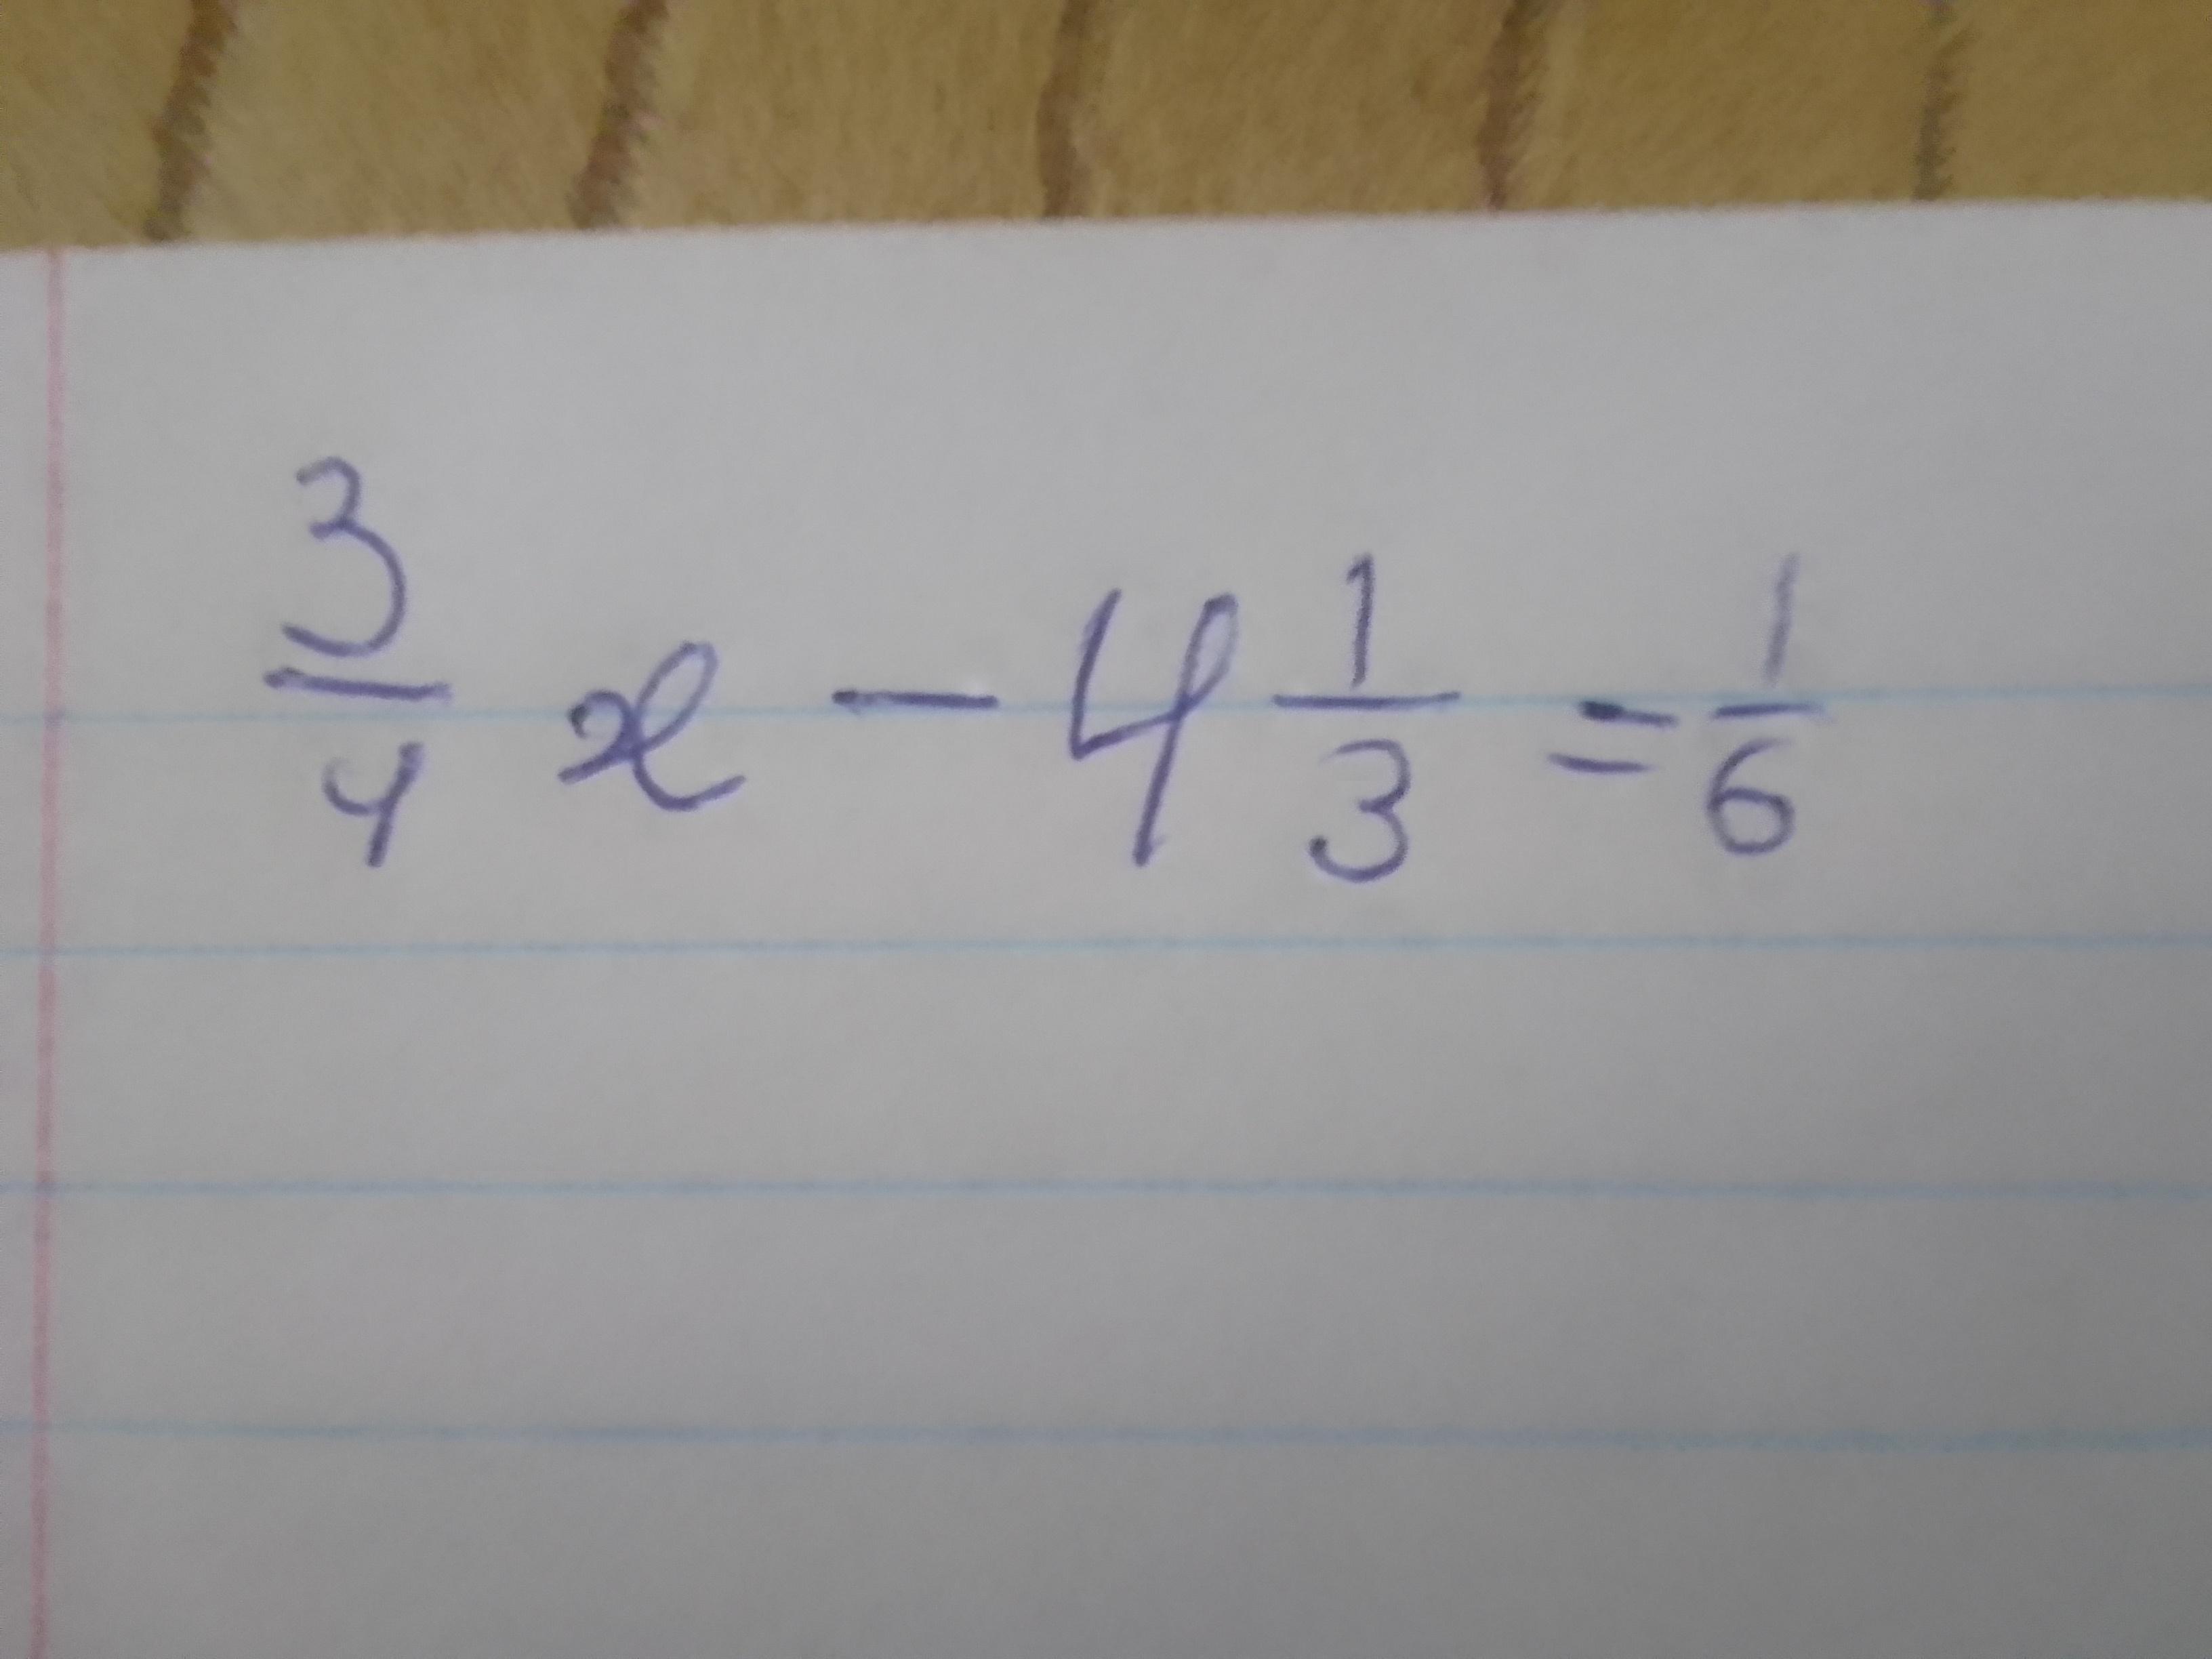 3/4 x - 4 1/3 = 1/6